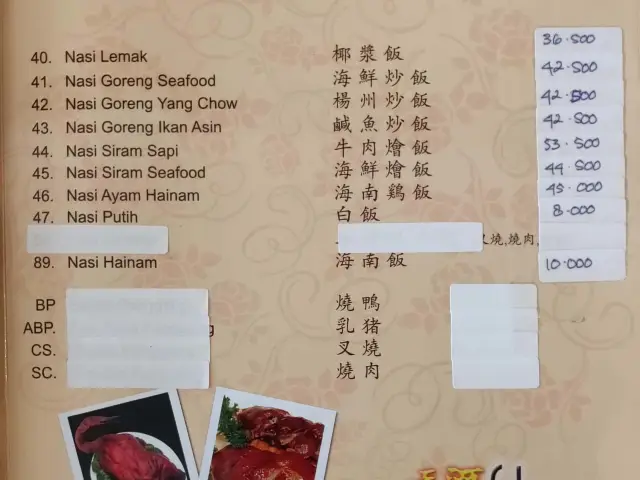 40. Nasi Lemak 椰漿飯 36.500
41. Nasi Goreng Seafood 海鮮炒飯 42.500
42. Nasi Goreng Yang Chow 楊州炒飯 42.500
43. Nasi Goreng Ikan Asin 鹹魚炒飯 42.500
44. Nasi Siram Sapi 牛肉燴飯 53.500
45. Nasi Siram Seafood 海鮮燴飯 44.500
46. Nasi Ayam Hainam 海南鷄飯 45.000
47. Nasi Putih 白飯 8.000
燒,燒肉,
89. Nasi Hainam 海南飯 10.000
BP 燒鴨
ABP. g 乳猪
CS. 叉燒
SC. 燒肉